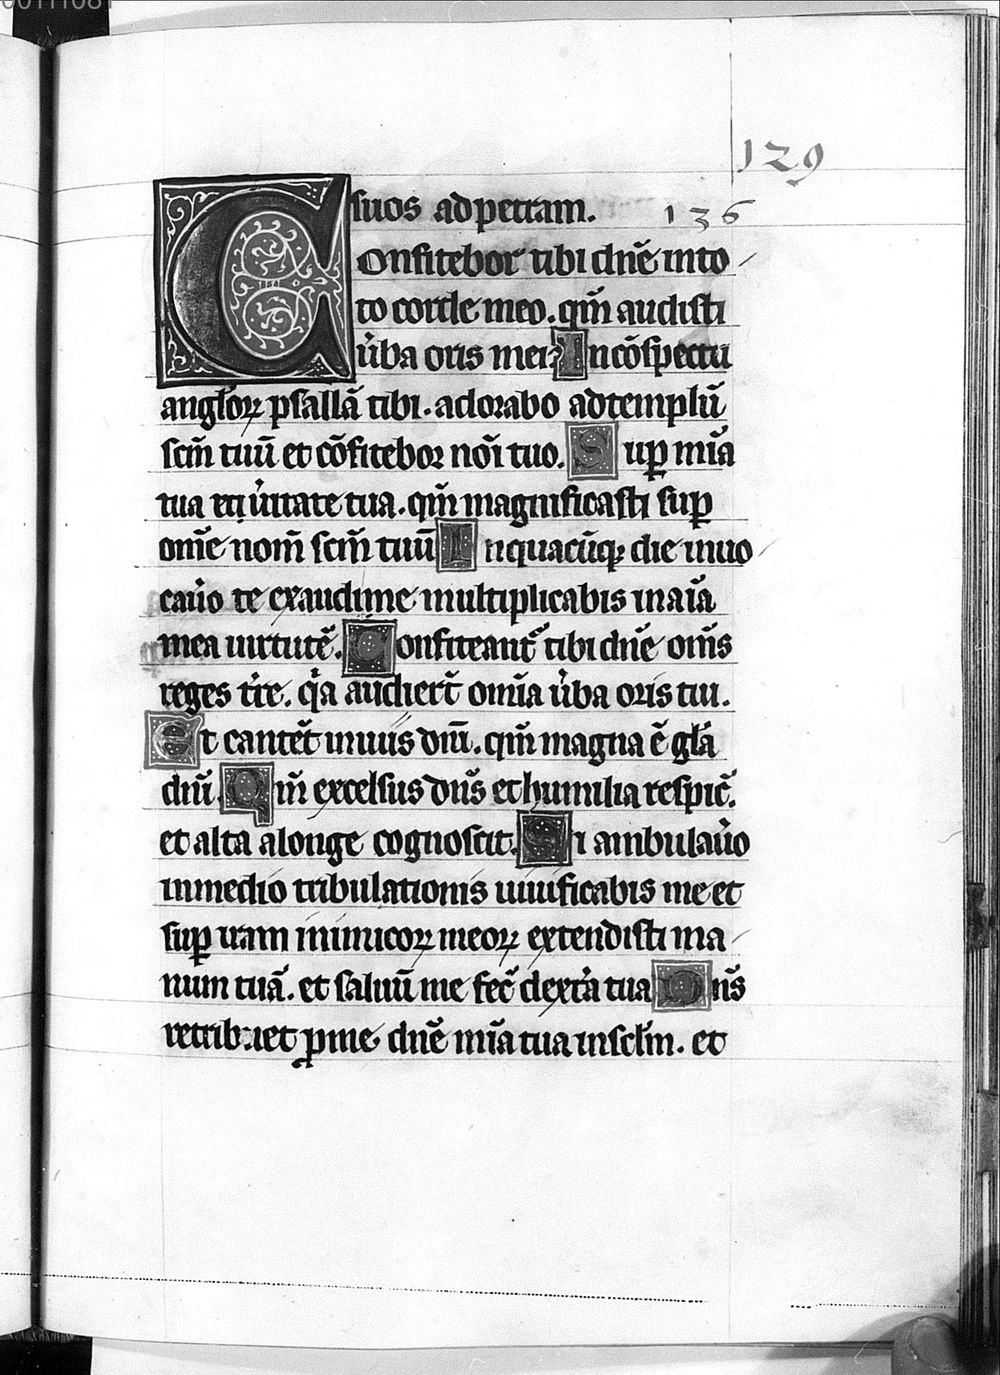 00111081
129
suos ad petram. 136
Confitebor tibi dn̄e in to
to corde meo. qm̄ audisti
u̾ba oris mei. In cōspectu
anglo̾ꝝ psallā tibi. adorabo ad templū
scm̄ tuū et cōfitebor noī tuo. Sup mīa
tua et u̾itate tua. qm̄ magnificasti sup
om̄e nom̄ scm̄ tuū In quacūqꝫ die inuo
cau̾o te exaudi me multiplicabis in aīa
mea uirtutē. Confiteant̾ tibi dn̄e om̄s
reges t̾re. q̾a audiert̄ om̄ia u̾ba oris tui.
Et cantēt in uiis dn̄i. qm̄ magna ē gl̾a
dn̄i. Qm̄ excelsus dn̄s et humilia respic̄.
et alta a longe cognoscit. Si ambulau̾o
in medio tribulationis uiuificabis me et
sup iram inimicoꝝ meoꝝ extendisti ma
num tuā. et saluū me fec̄ dext̾a tua Dn̄s
retribuet p me dn̄e mīa tua in sclm̄. et